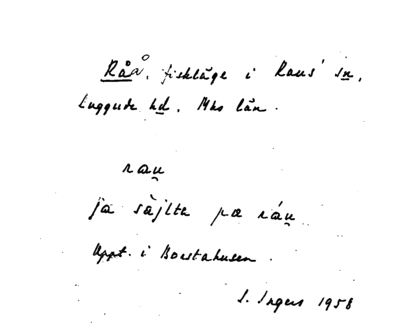 Råå, fiskläge i Raus' sn,
Luggude hd, Mhs län.
rau̯
ja sàjlte pæ ráu̯
Uppt. i Borstahusen.
I. Ingers 1958